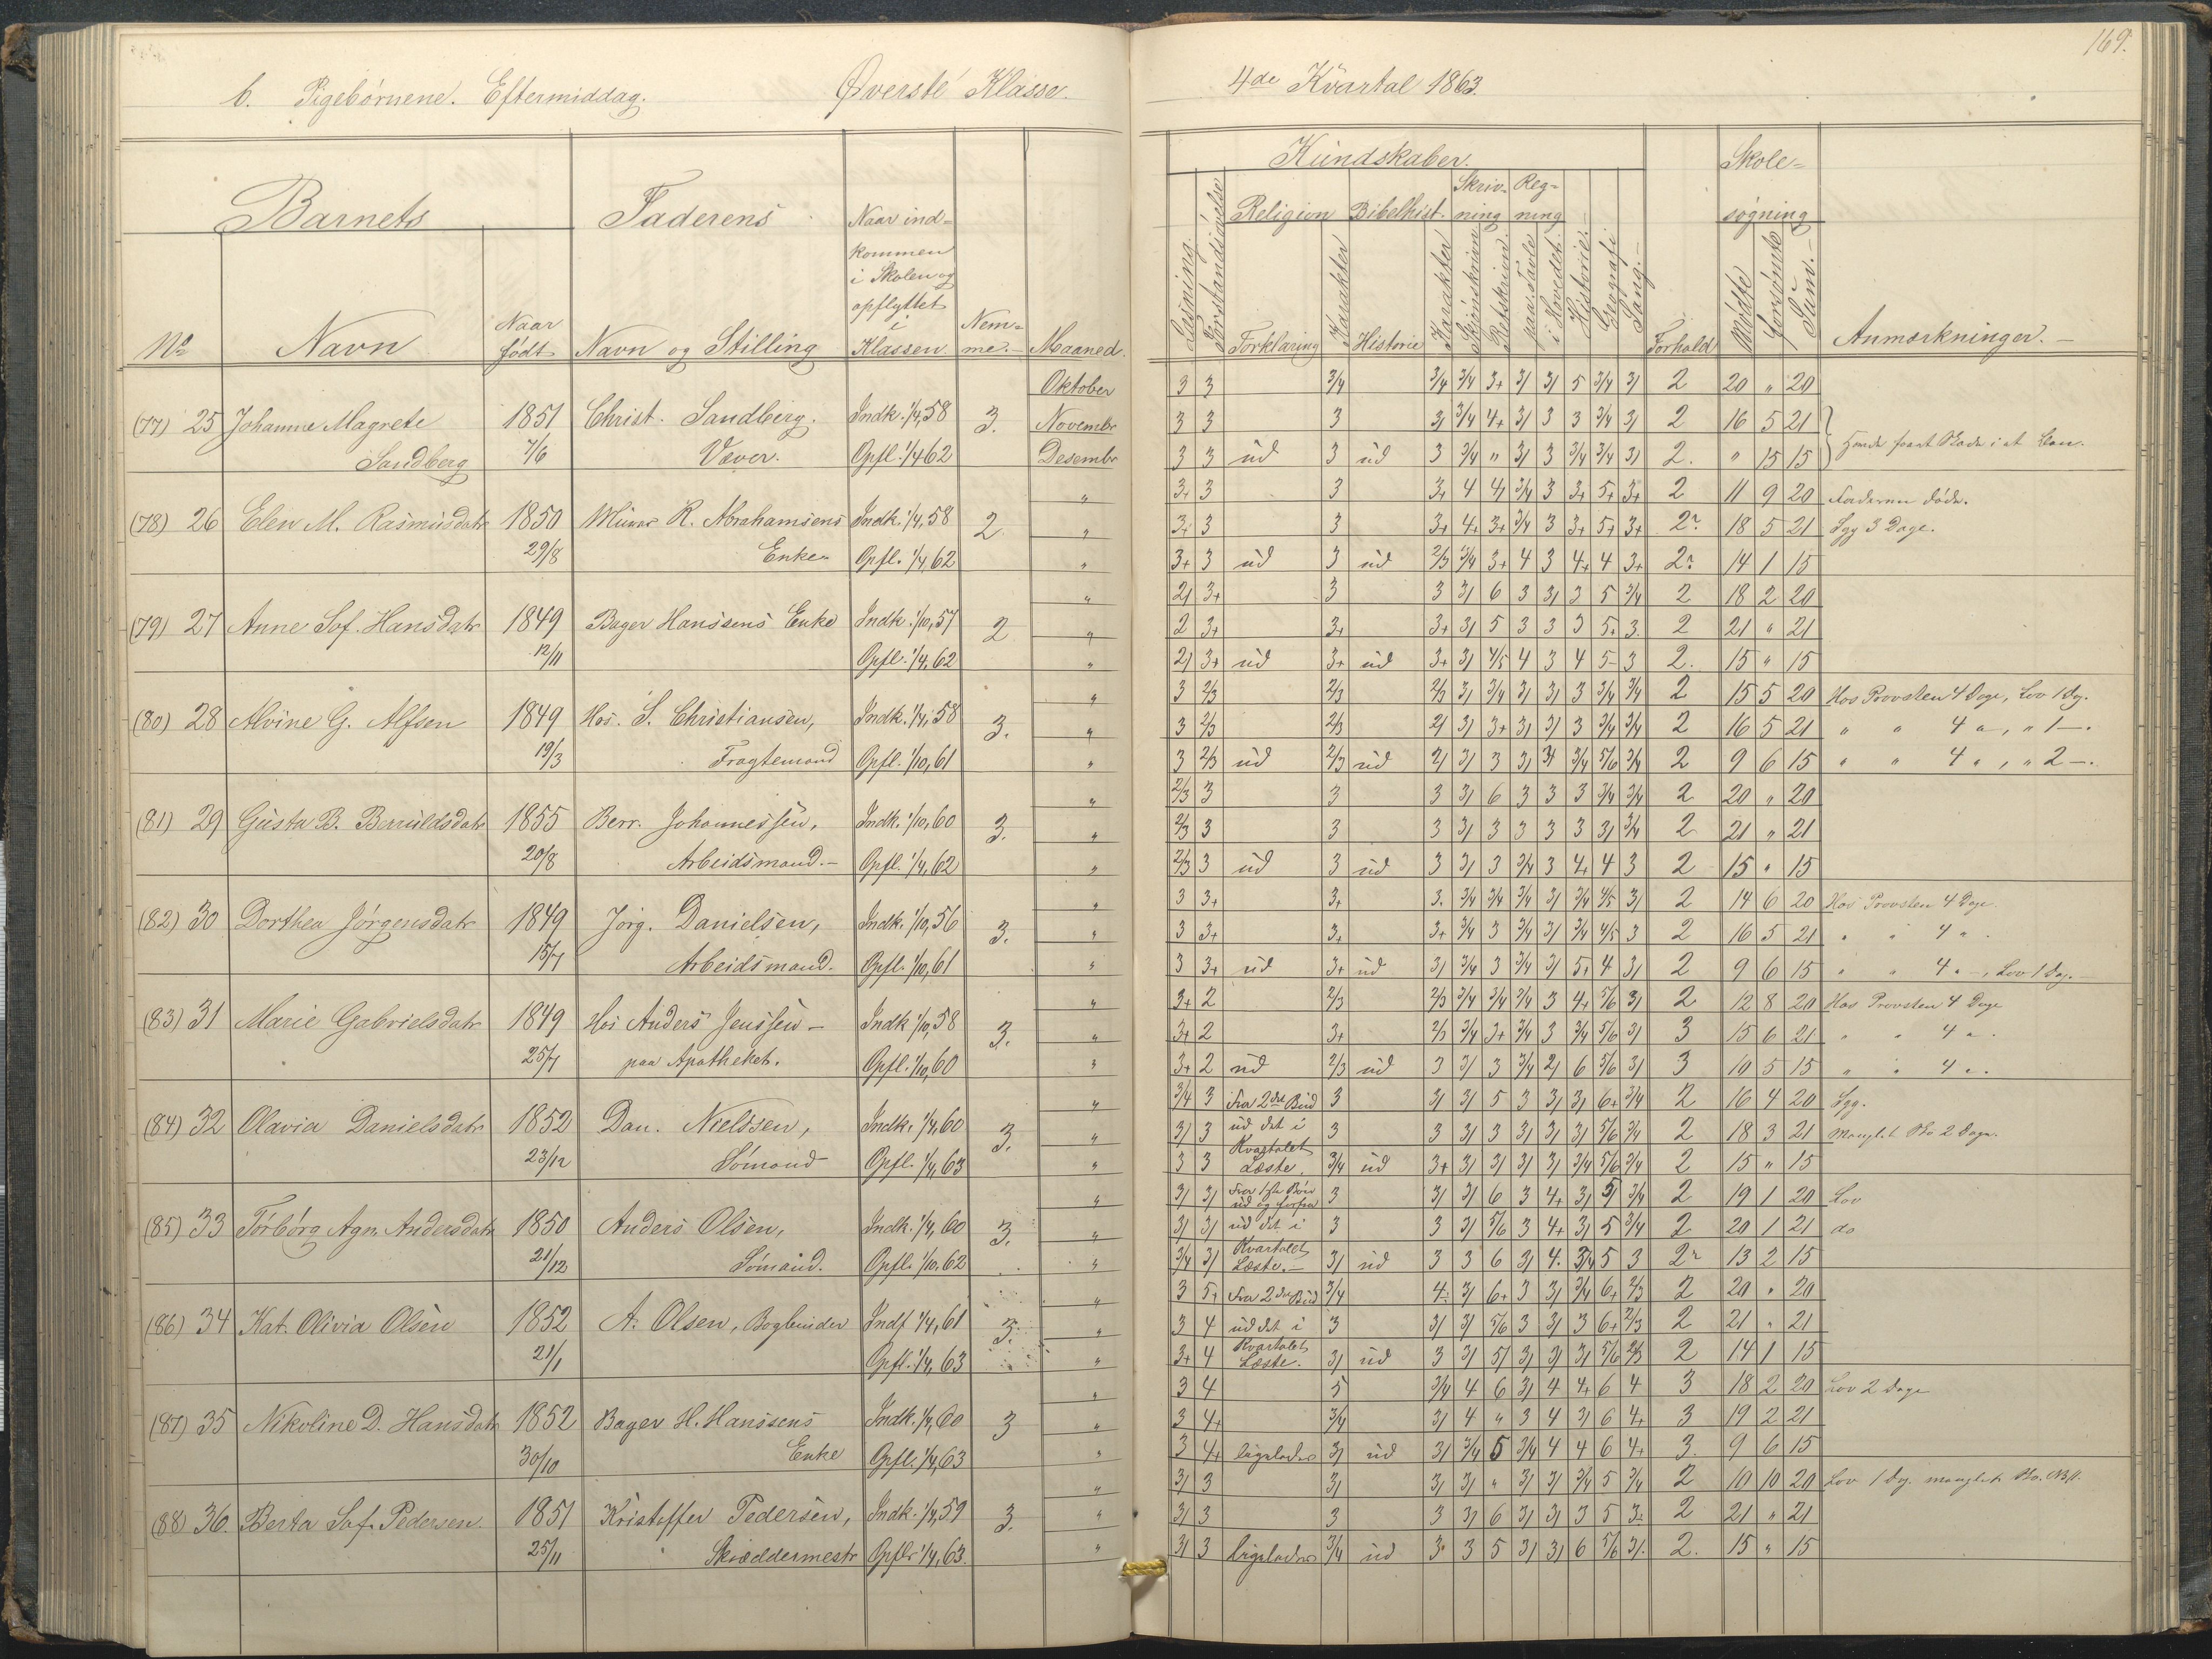 169.
b. Pigebørnene. Eftermiddag. Øverste Klasse. 4de Kvartal 1863.
Kundskaber. Skole-
Barnets Faderens Naar ind- Religion Bibelhist. Skriv- Reg- søgning
kommen ning ning
i Skolen og
opflyttet
i
No Navn Naar Navn og Stilling Klassen Nem- Maaned.
født me.
Læsning. Forstandsøvelse Forklaring Karakter Historie Karakter Skjönskrivn. Retskrivn. paa Tavle i Hovedet. Historie. Geografi Sang. Forhold Mödte forsömte Sum. Anmærkninger.
Oktober 3 3 3/4 3/4 3/4 3+ 3/ 3/ 5 3/4 3/ 2 20 " 20
(77) 25 Johanne Magrete 1851 Christ. Sandberg. Indk. 1/4,58 3. Novembr 3 3 3 3/ 3/4 4+ 3/ 3 3 3/4 3/ 2 16 5 21
Sandberg 7/6 Væver. Opfl. 1/4 62 Desembr 3 3 ud 3 ud 3 3/4 " 3/ 3 3/4 3/4 3/ 2. " 15 15
" 3+ 3 3 3+ 4 4/ 3/4 3 3+ 5+ 3+ 2 11 9 20 Faderen döde.
(78) 26 Elen M. Rasmusdatr 1850 Murer R. Abrahamsens Indk. 1/4,58 2. " 3+ 3 3 3+ 4+ 3+ 3/4 3 3+ 5+ 3+ 2? 18 5 21 Syg 3 Dage.
29/8 Enke Opfl. 1/4,62 " 3+ 3 ud 3 ud 2/3 3/4 3+ 4 3 4+ 4 3+ 2? 14 1 15
" 2/ 3+ 3 3 3/ 6 3 3/ 3 5 3/4 2 18 2 20
(79) 27 Anne Sof. Hansdatr 1849 Bager Hanssens Enke Indk. 1/10,57 2 " 2 3+ 3+ 3+ 3/ 5 3 3 3 5+ 3. 2 21 " 21
12/11 Opfl. 1/4,62 " 2/ 3+ ud 3+ ud 3+ 3/ 4/5 4 3 4 5- 3 2. 15 " 15
" 3 2/3 2/3 2/3 3/ 3/4 3/ 3/ 3 3/4 3/4 2 15 5 20 Hos Provsten 4 Dage, Lov 1 Dg.
(80) 28 Alvine G. Alfsen 1849 Hos. S. Christiansen, Indk. 1/4,58 3. " 3 2/3 2/3 2/ 3/ 3+ 3/ 3/ 3 3/4 3/4 2 16 5 21 " " 4 ", " 1 —.
19/3 Fragtemand Opfl. 1/10,61 " 3 2/3 ud 2/3 ud 2/ 3/ 3 3/ 3/ 3/4 5/6 3/4 2 9 6 15 " " 4 ", " 2 —.
" 2/3 3 3 3 3/ 6 3 3 3 3/4 3/4 2 20 " 20
(81) 29 Gusta B. Berruldsdatr 1855 Berr. Johannessen, Indk. 1/10,60 3. " 2/3 3 3 3 3/ 3 3 3 3 3/ 3/4 2 21 " 21
20/8 Arbeidsmand. Opfl. 1/4,62 " 2/3 3 ud 3 ud 3 3/ 3 3/4 3 4+ 4 3 2 15 " 15
" 3 3+ 3+ 3. 3/4 3/4 3/4 3/ 3/4 4/5 3/ 2 14 6 20 Hos Provsten 4 Dage.
(82) 30 Dorthea Jörgensdatr 1849 Jörg. Danielsen, Indk. 1/10,56 3. " 3 3+ 3+ 3+ 3/4 3 3/4 3/ 3/4 4/5 3 2 16 5 21 " " 4 ".
15/7 Arbeidsmand. Opfl. 1/10,61 " 3 3+ ud 3+ ud 3/ 3/4 3 3/4 3/ 5+ 4 3/ 2 9 6 15 " " 4 " —, Lov 1 Dag.
" 3+ 2 2/3 2/3 3/4 3/4 3/4 3 4+ 5/6 3/ 2 12 8 20 Hos Provsten 4 Dage
(83) 31 Marie Gabrielsdatr 1849 Hos Anders Jenssen — Indk 1/10,58 3. " 3+ 2 3+ 2/3 3/4 3+ 3/4 3 3/4 5/6 3/ 3 15 6 21 " " 4 ".
25/7 paa Apotheket. Opfl. 1/10,60 " 3+ 2 ud 2/3 ud 3 3/ 3 3/4 2/ 6 5/6 3/ 3 10 5 15 " " 4 ".
" 3/4 3 Fra 2det Bud 3 3/ 3/ 5 3 3/ 3/ 6+ 3/4 2 16 4 20 Syg.
(84) 32 Olavia Danielsdatr 1852 Dan. Nielssen, Indk. 1/4,60 3. " 3/ 3 ud det i 3 3 3/ 3 3/ 3/ 3/ 5/6 3/4 2 18 3 21 2 Dage.
23/12 Sömand Opfl. 1/4,63 " 3 3 Kvartalet Læste. 3/4 ud 3+ 3/ 3/ 3/ 3/ 3/4 5/6 3/4 2 15 " 15
" 3/ 3/ Fra 1ste ud og forfra 3 3/ 3/ 6 3 4+ 3/ 5/ 3/4 2 19 1 20 Lov
(85) 33 Torborg Agn. Andersdatr 1850 Anders Olsen, Indk. 1/4,60 3. " 3/ 3/ ud det i 3 3 3/ 5/6 3 4+ 3/ 5 3/4 2 20 1 21 do
21/12 Sömand. Opfl. 1/10,62 " 3/4 3/ Kvartalet Læste. 3/ ud 3 3 6 3/ 4. 3/4 5 3 2? 13 2 15
" 3 5+ Fra 2det Bud 3/4 4. 3/ 6+ 3 3/ 3/4 6+ 2/3 2 20 " 20
(86) 34 Kat. Olivia Olsen 1852 A. Olsen, Bogbinder Indk 1/4,61 3. " 3 4 ud det i 3 3/ 3/ 5/6 3 3/ 3 6+ 2/3 2 21 " 21
21/1 Opfl. 1/4,63 " 3+ 4 Kvartalet Læste. 3/ ud 3 3/ 5/ 3/ 3/ 3/ 5/6 2/3 2 14 1 15
" 3 4 5 3/4 4 6 3/ 4 4+ 6 4 3 18 2 20 Lov 2 Dage
(87) 35 Nikoline D. Hansdatr 1852 Bager H. Hanssens Indk. 1/4,60 3 " 3 4+ 3/4 3/ 4 " 3 4 3/ 6 4+ 3 19 2 21
30/10 Enke Opfl. 1/4,63 " 3 4+ ligeledes 3/ ud 3/ 3/4 5 3/4 4 4 6 4+ 3. 9 6 15
" 3/ 3 3/ 3/ 3/ " 3/ 3/ 3/4 5 3/4 2 10 10 20 Lov 1 Dg.
(88) 36. Berta Sof. Pedersen. 1851 Kristoffer Pedersen, Indk. 1/4,59 3. " 3/ 3 3 3 3/ 6 3/ 3/ 3 5 3+ 2 21 " 21
25/11 Skræddermestr Opfl. 1/4,63. " 3/ 3 Ligeledes 3/4 ud 3 3 5 3/ 3/ 6 5/6 3/. 2. 15 " 15